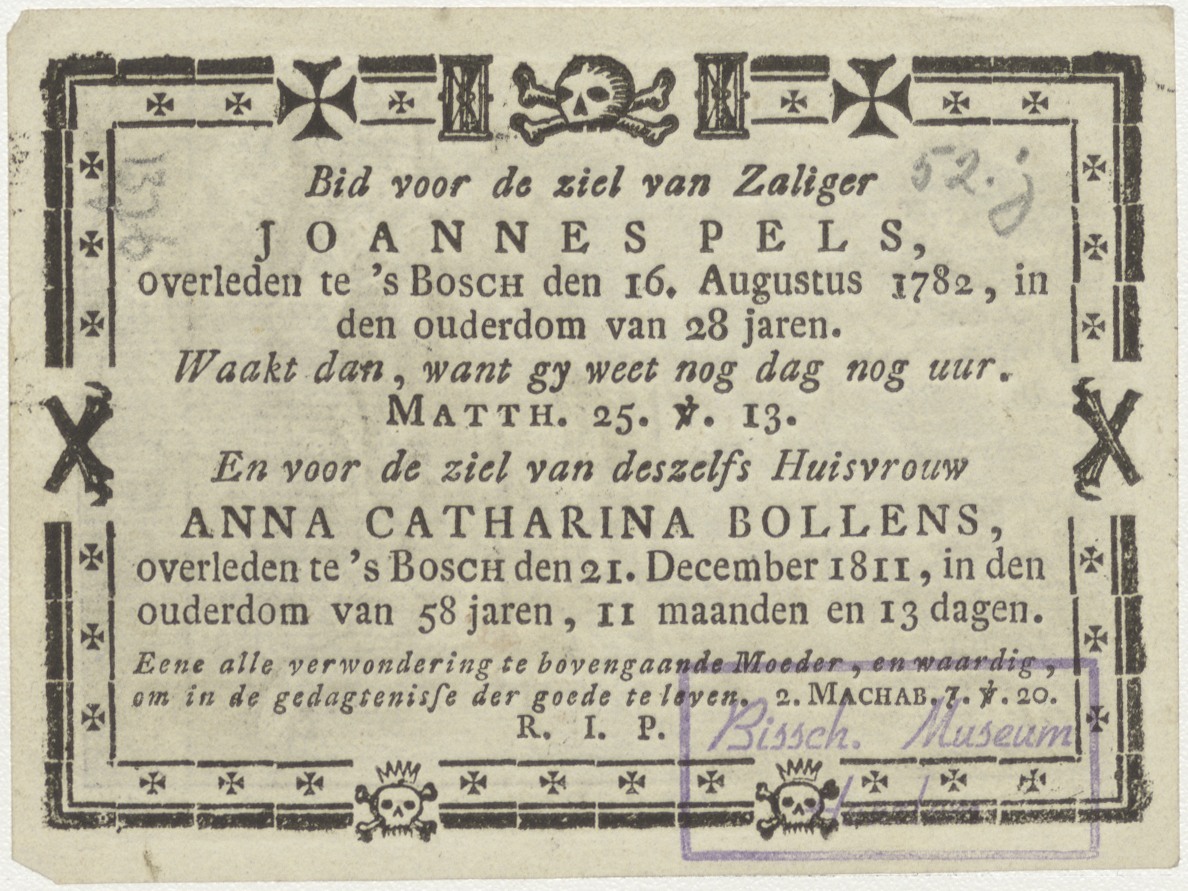 52.j
Bid voor de ziel van Zaliger
JOANNES PELS,
overleden te 's BOSCH den 16. Augustus 1782, in
den ouderdom van 28 jaren.
Waakt dan, want gy weet nog dag nog uur.
MATTH. 25. ℣. 13.
En voor de ziel van deszelfs Huisvrouw
ANNA CATHARINA BOLLENS,
overleden te 's BOSCH den 21. December 1811, in den
ouderdom van 58 jaren, 11 maanden en 13 dagen.
Eene alle verwondering te bovengaande Moeder, en waardig,
om in de gedagtenisſe der goede te leven. 2. MACHAB. 7. ℣. 20.
R. I. P.
Bissch. Museum